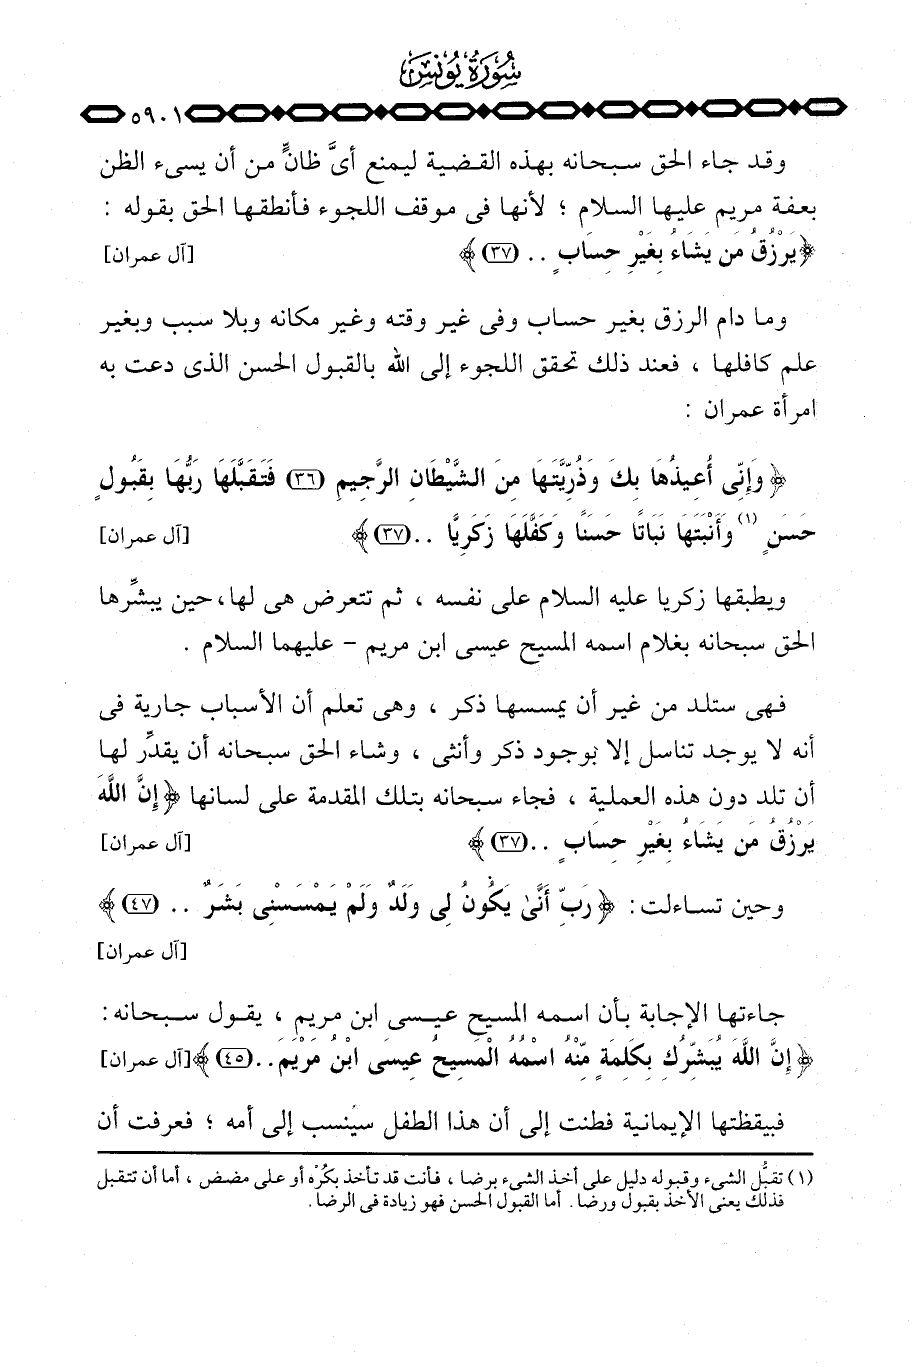 سُورَةُ يُونس
٥٩٠١
وقد جاء الحق سبحانه بهذه القضية ليمنع أىَّ ظانٍّ من أن يسىء الظن
بعفة مريم عليها السلام ؛ لأنها فى موقف اللجوء فأنطقها الحق بقوله :
﴿ يَرْزُقُ مَن يَشَاءُ بِغَيْرِ حِسَابٍ .. (٣٧) ﴾ [آل عمران]
وما دام الرزق بغير حساب وفى غير وقته وغير مكانه وبلا سبب وبغير
علم كافلها ، فعند ذلك تحقق اللجوء إلى الله بالقبول الحسن الذى دعت به
امرأة عمران :
﴿ وَإِنِّى أُعِيذُهَا بِكَ وَذُرِّيَّتَهَا مِنَ الشَّيْطَانِ الرَّجِيمِ (٣٦) فَتَقَبَّلَهَا رَبُّهَا بِقَبُولٍ
حَسَنٍ (١) وَأَنْبَتَهَا نَبَاتًا حَسَنًا وَكَفَّلَهَا زَكَرِيَّا .. (٣٧) ﴾ [آل عمران]
ويطبقها زكريا عليه السلام على نفسه ، ثم تتعرض هى لها، حين يبشِّرها
الحق سبحانه بغلام اسمه المسيح عيسى ابن مريم - عليهما السلام .
فهى ستلد من غير أن يمسسها ذكر ، وهى تعلم أن الأسباب جارية فى
أنه لا يوجد تناسل إلا بوجود ذكر وأنثى ، وشاء الحق سبحانه أن يقدِّر لها
أن تلد دون هذه العملية ، فجاء سبحانه بتلك المقدمة على لسانها ﴿ إِنَّ اللَّهَ
يَرْزُقُ مَن يَشَاءُ بِغَيْرِ حِسَابٍ .. (٣٧) ﴾ [آل عمران]
وحين تساءلت : ﴿ رَبِّ أَنَّىٰ يَكُونُ لِى وَلَدٌ وَلَمْ يَمْسَسْنِى بَشَرٌ .. (٤٧) ﴾
[آل عمران]
جاءتها الإجابة بأن اسمه المسيح عيسى ابن مريم ، يقول سبحانه :
﴿ إِنَّ اللَّهَ يُبَشِّرُكِ بِكَلِمَةٍ مِّنْهُ اسْمُهُ الْمَسِيحُ عِيسَى ابْنُ مَرْيَمَ .. (٤٥) ﴾ [آل عمران]
فبيقظتها الإيمانية فطنت إلى أن هذا الطفل سيُنسب إلى أمه ؛ فعرفت أن
(١) تقبُّل الشىء وقبوله دليل على أخذ الشىء برضا ، فأنت قد تأخذ بكُرْه أو على مضض ، أما أن تتقبل
فذلك يعنى الأخذ بقبول ورضا. أما القبول الحسن فهو زيادة فى الرضا.